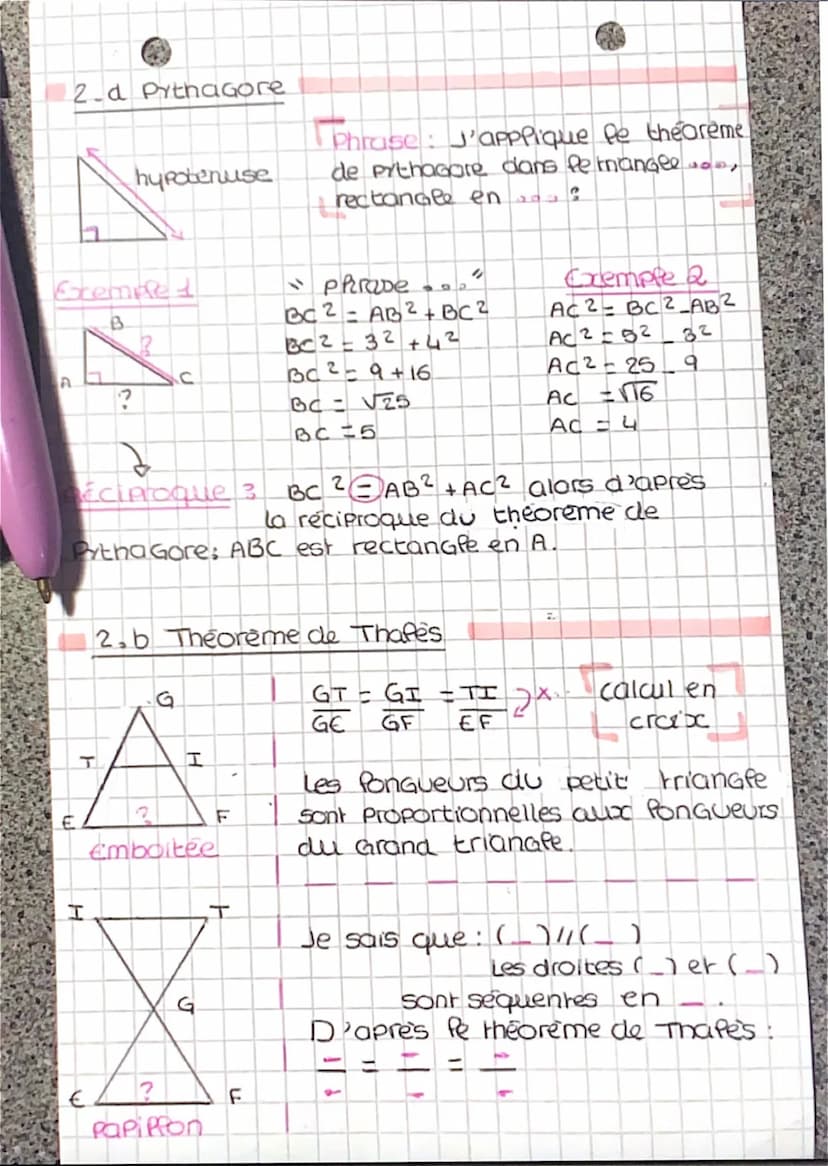 2-a Pythagore
hypotenuse
Phrase : J'applique le théorème
de pythagore dans le triangle ...,
rectangle en ... :
Exemple 1
B
?
A
C
?
" Phrase ... "
BC² = AB² + BC²
BC² = 3² + 4²
BC² = 9 + 16
BC = √25
BC = 5
Exemple 2
AC² = BC² - AB²
AC² = 5² - 3²
AC² = 25 - 9
AC = √16
AC = 4
Réciproque : BC² = AB² + AC² alors d'après
la réciproque du théorème de
Pythagore; ABC est rectangle en A.
2.b Théorème de Thalès
G
T
I
E
?
F
Emboitée
GT/GE = GI/GF = TI/EF x.
calcul en
croix
Les longueurs du petit triangle
sont proportionnelles aux longueurs
du Grand triangle.
I
T
G
E
?
F
Papillon
Je sais que : (_)//(_)
Les droites (_) et (_)
sont séquentes en _.
D'après le théorème de Thalès :
_/_ = _/_ = _/_